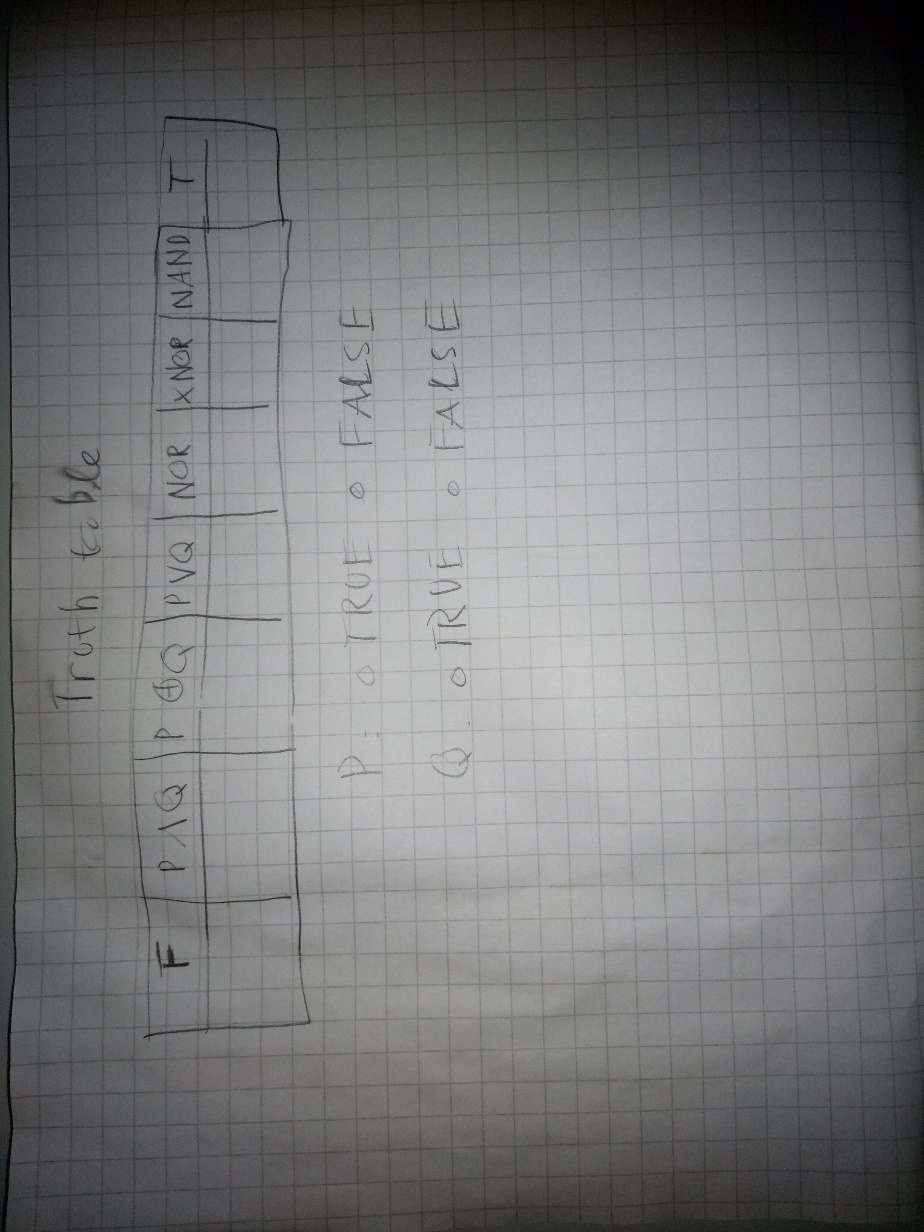 Truth table
F P∧Q P⊕Q P∨Q NOR XNOR NAND T
P: o TRUE o FALSE
Q: o TRUE o FALSE